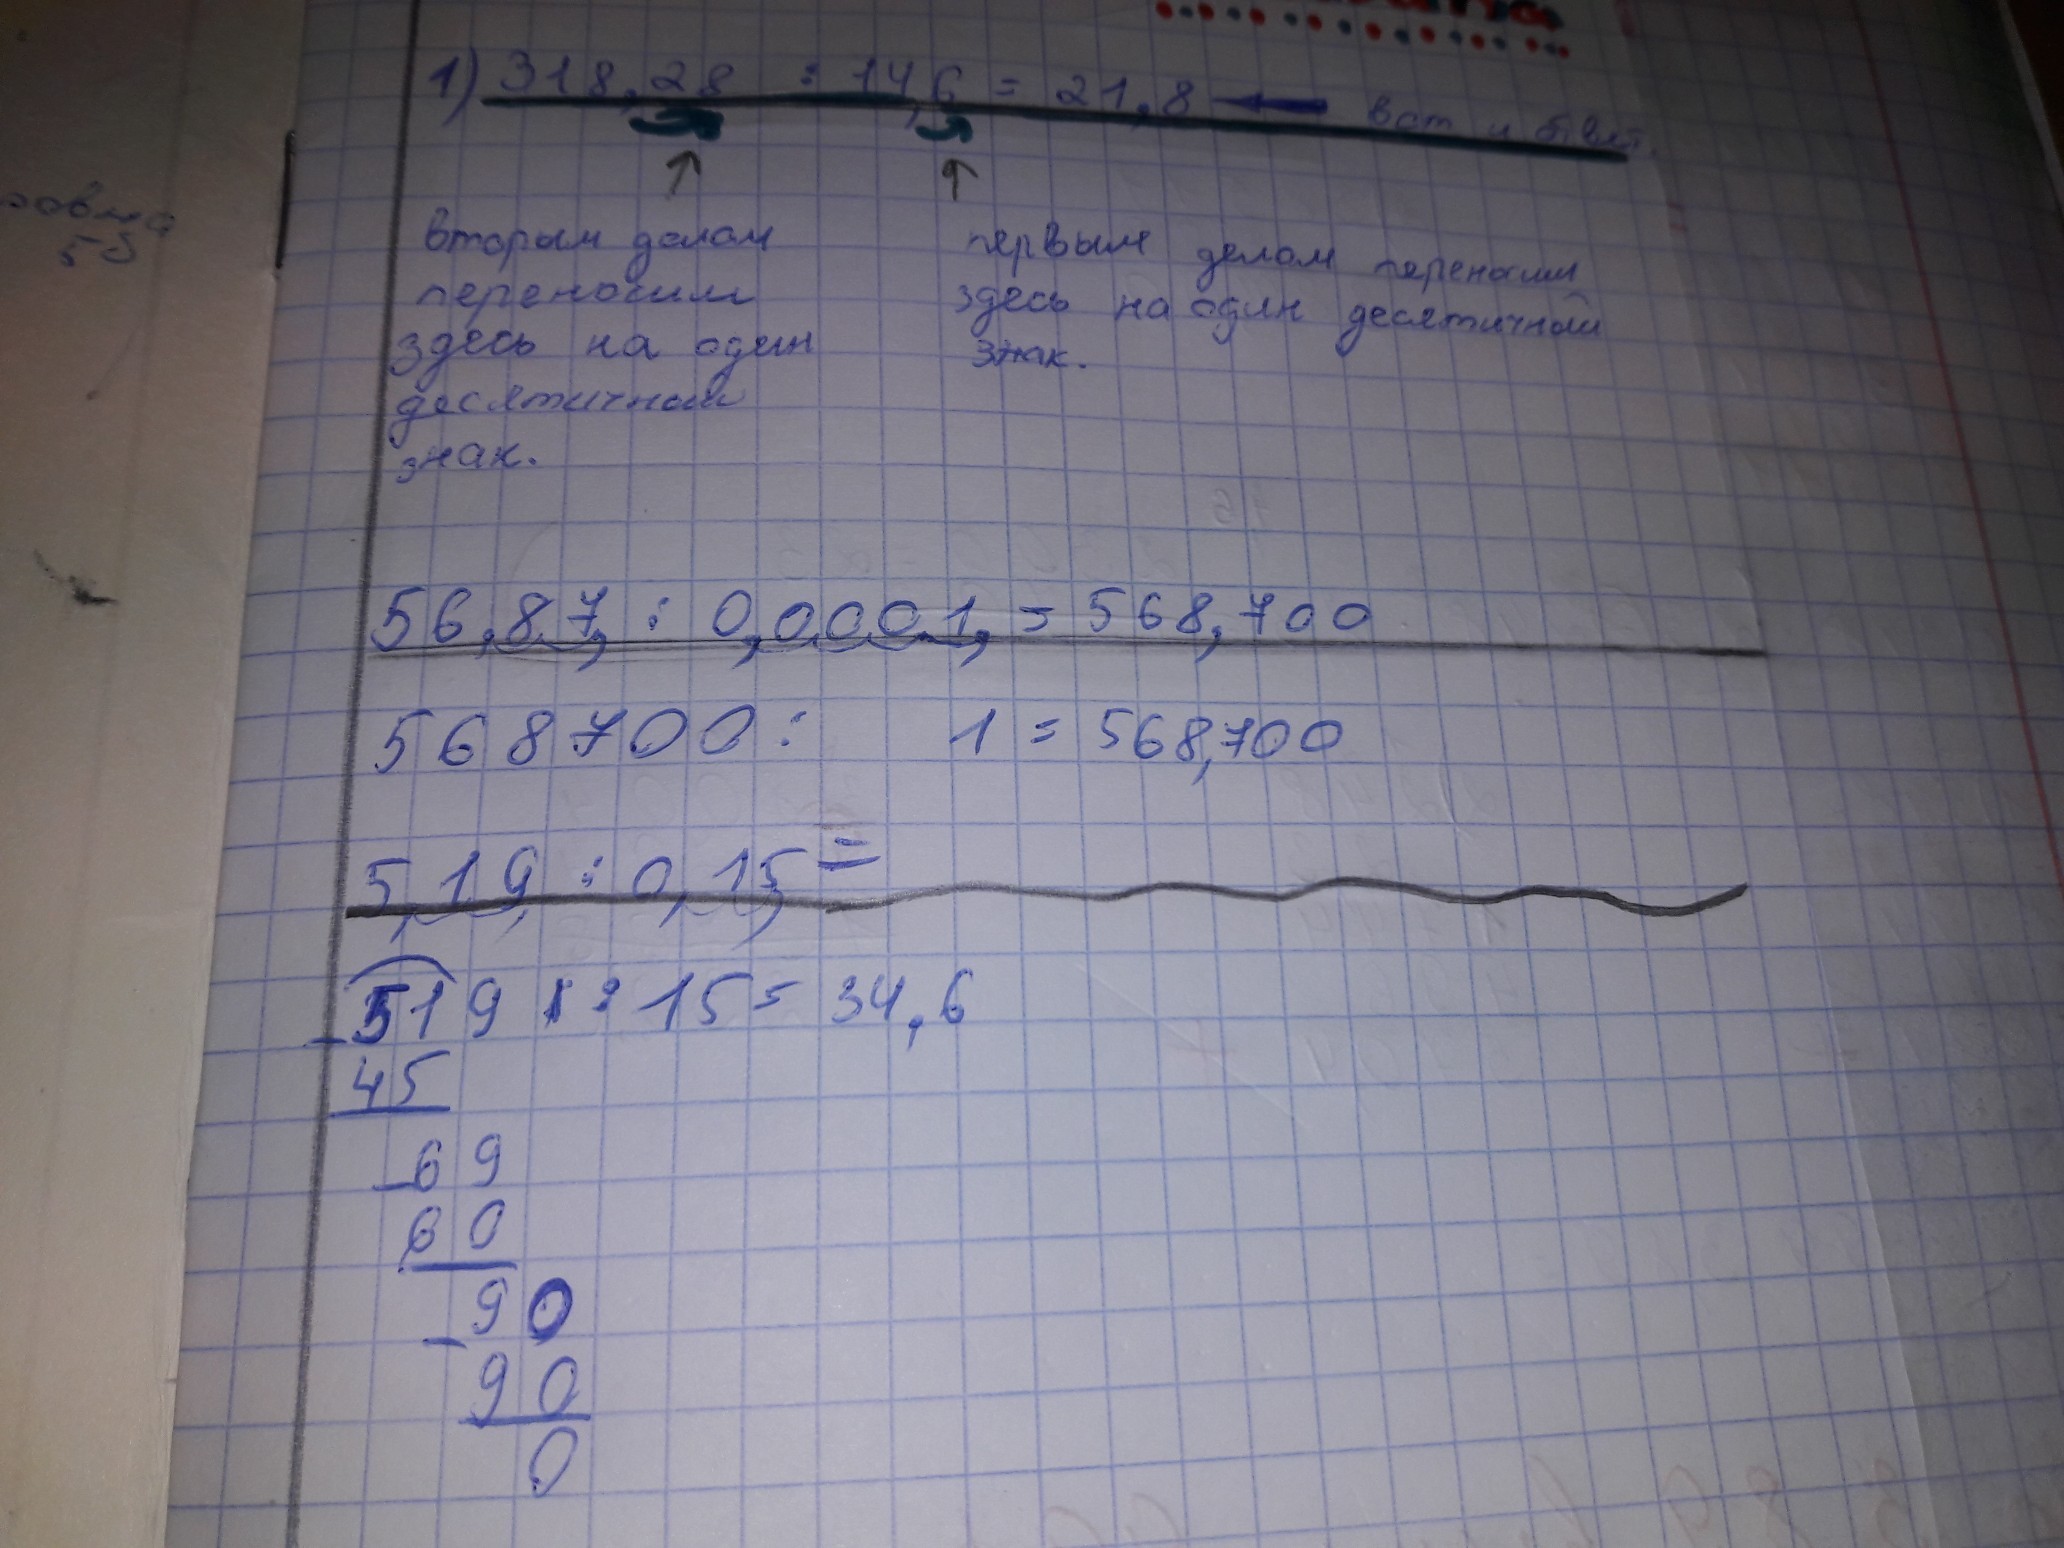 1) 318,28 : 14,6 = 21,8 ← вот и ответ.
вторым делом
переносим
здесь на один
десятичный
знак.
первым делом переносим
здесь на один десятичный
знак.
56,87, : 0,0001, = 568,700
568700 : 1 = 568,700
5,19, : 0,15, =
519 : 15 = 34,6
- 45
- 69
60
- 90
90
0